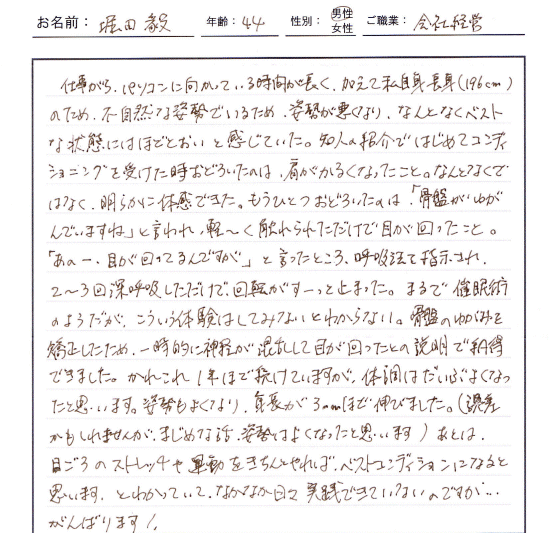 お名前: 堀田 毅 年齢: 44 性別: 男性 女性 ご職業: 会社経営
仕事がら、パソコンに向かっている時間が長く、加えて私自身長身(196cm)
のため、不自然な姿勢でいるため、姿勢が悪くなり、なんとなくベスト
な状態にはほどとおいと感じていた。知人の紹介ではじめてコンディ
ショニングを受けた時おどろいたのは、肩がかるくなったこと。なんとなくで
はなく、明らかに体感できた。もうひとつおどろいたのは、「骨盤がゆが
んでいますね」と言われ、軽〜く触れられただけで目が回ったこと。
「あの一、目が回ってるんですが」と言ったところ、呼吸法を指示され、
2〜3回深呼吸しただけで、回転がすーっと止まった。まるで催眠術
のようだが、こういう体験はしてみないとわからない。骨盤のゆがみを
矯正したため、一時的に神経が混乱して目が回ったとの説明で納得
できました。かれこれ1年ほど続けていますが、体調はだいぶよくなっ
たと思います。姿勢もよくなり、身長が3mmほど伸びました。(誤差
かもしれませんが、まじめな話、姿勢はよくなったと思います)あとは、
日ごろのストレッチや運動をきちんとやれば、ベストコンディションになると
思います。とわかっていて、なかなか日々実践できていないのですが…
がんばります!